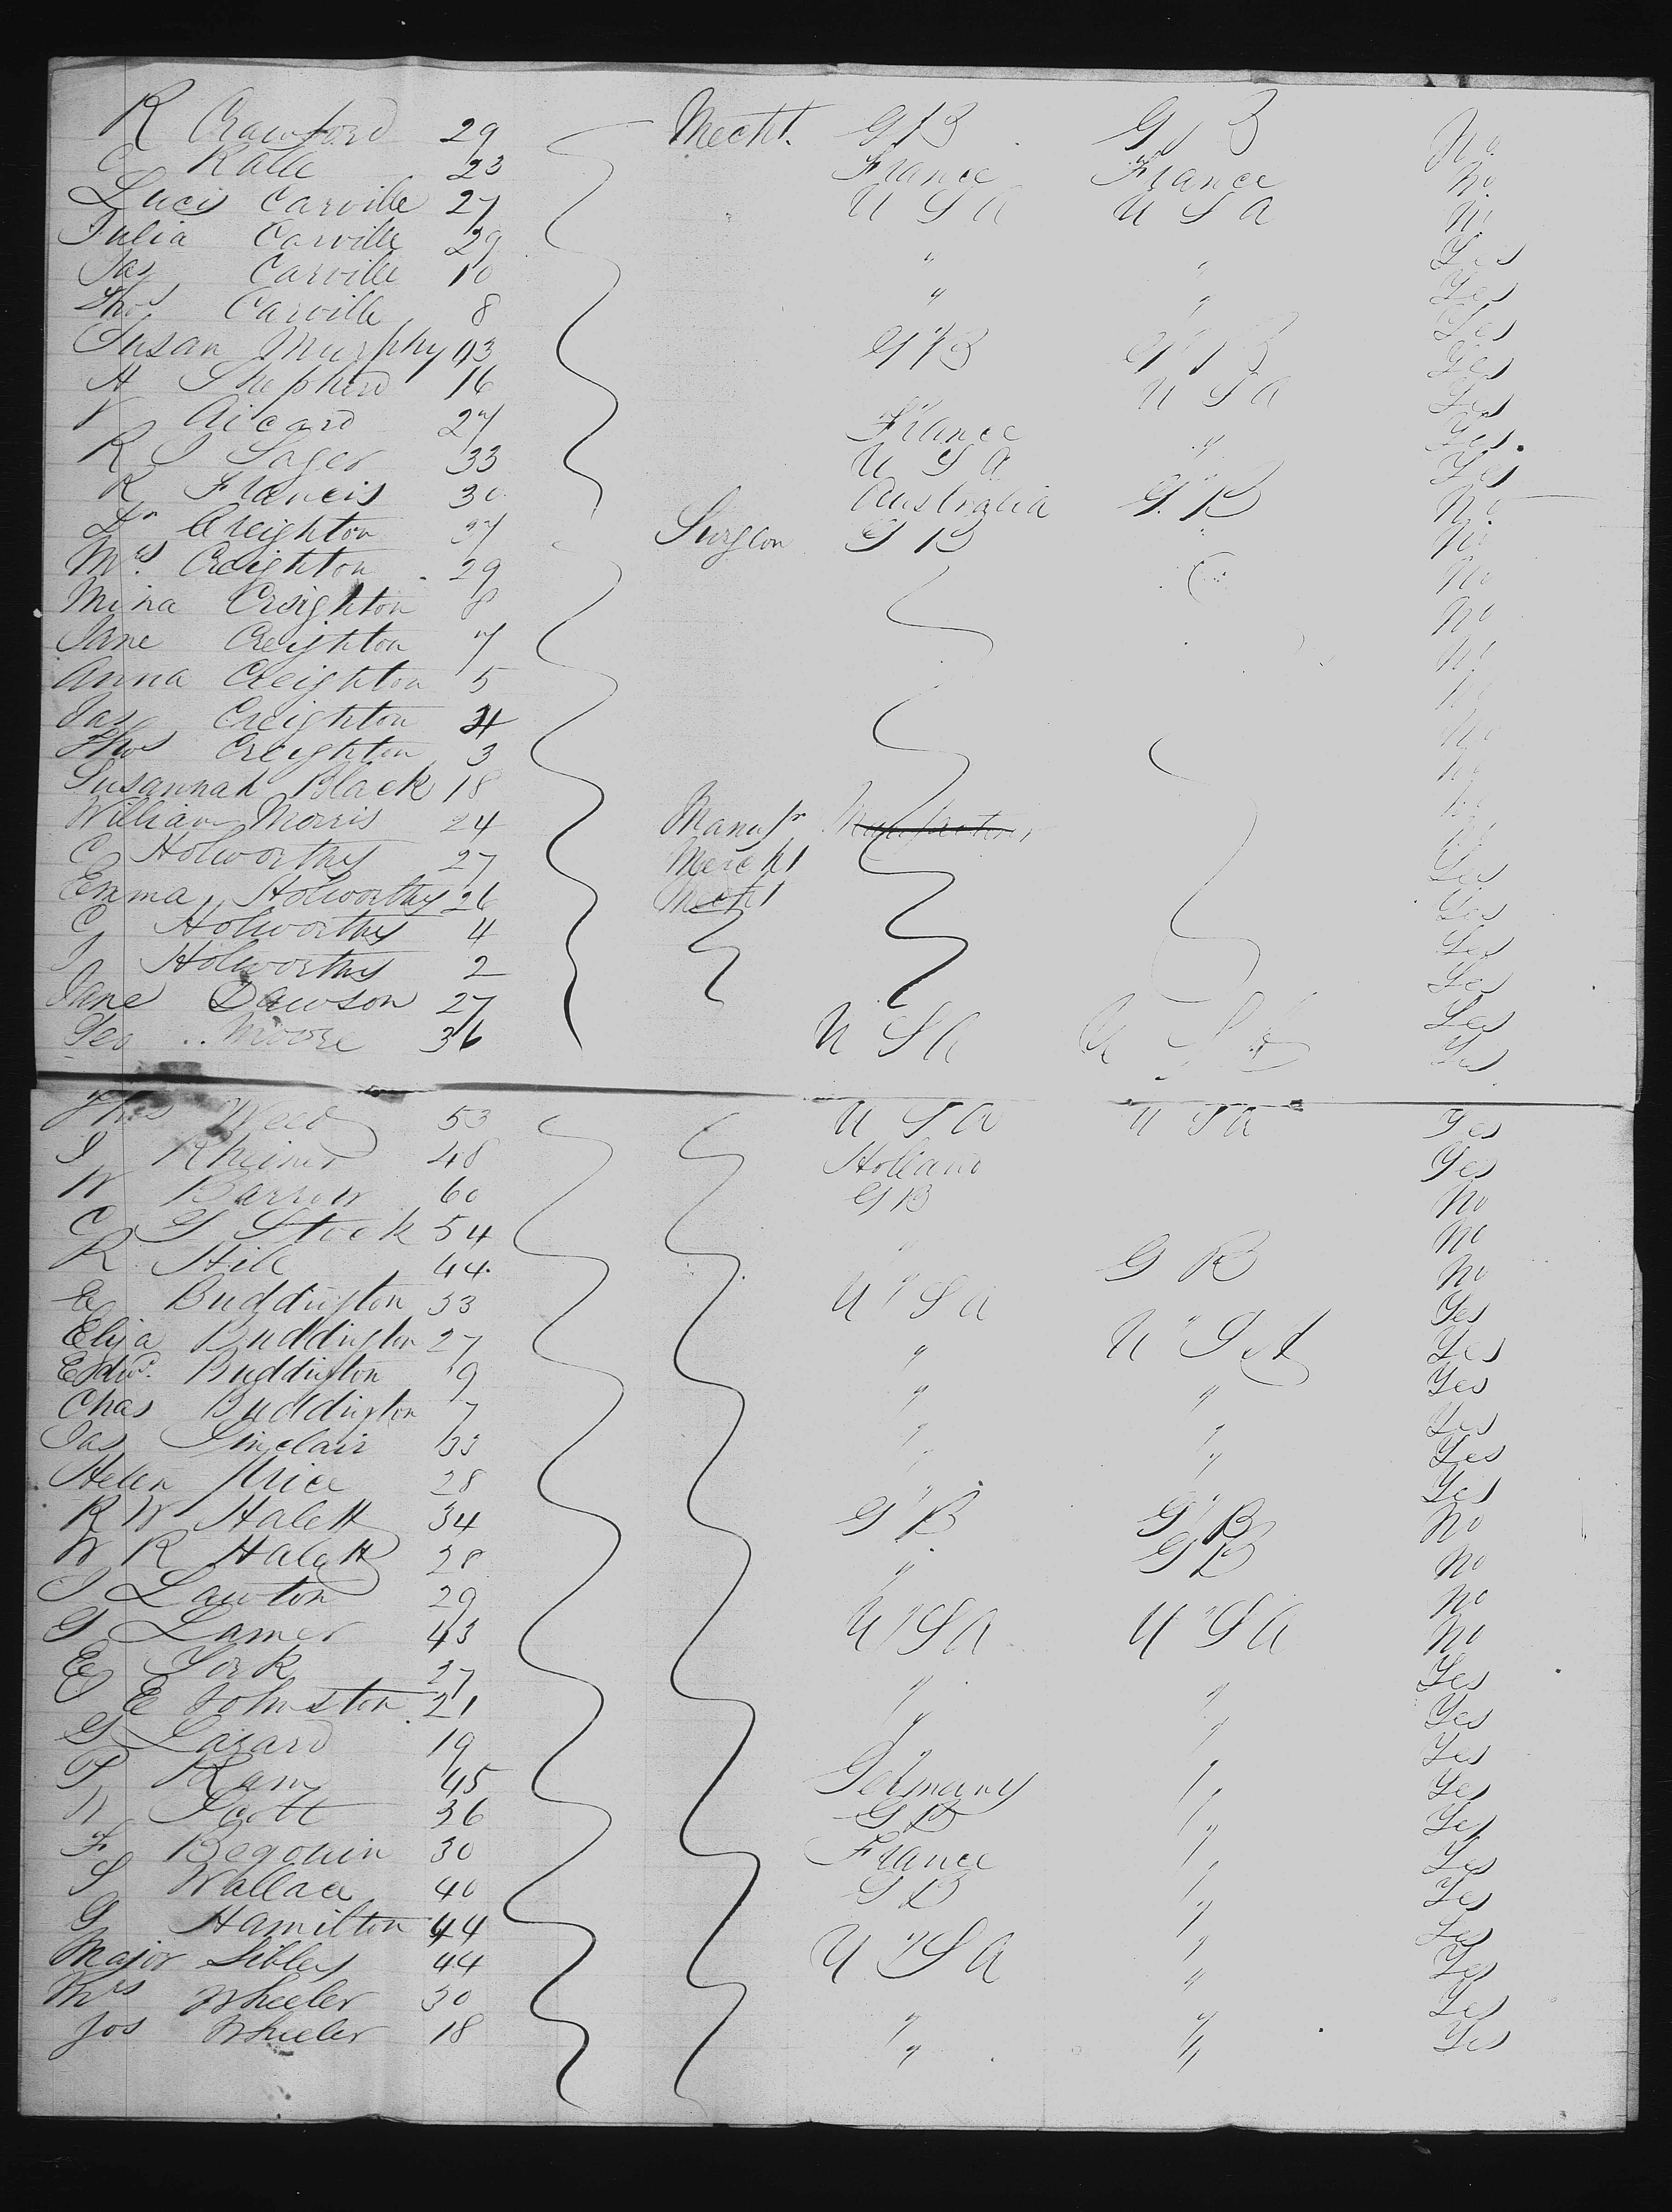 R Crawford 29 Mercht. G B G B No
C Ralle 23 France France No
Lucy Carville 27 U S A U S A No
Julia Carville 29 " " Yes
Jas Carville 10 " " Yes
Thos Carville 8 Yes
Susan Murphy 43 G B G B Yes
H Shepherd 16 U S A Yes
V Aicard 27 France " Yes
R J Sager 33 U S A Yes
R Francis 30 Australia G. B No
Dr Creighton 37 Surgeon G B No
Mrs. Creighton 29 No
Mina Creighton 8 No
Jane Creighton 7 No
Anna Creighton 5 No
Jas Creighton 4 No
Thos Creighton 3 No
Susannah Black 18 No
William Morris 24 Manufr
C Holworthy 27 Mercht Yes
Emma Holworthy 26 Mercht Yes
C Holworthy 4 Yes
J Holworthy 2 Yes
Jane Dawson 27 Yes
Geo Moore 36 U S A U S A Yes
Thos Weed 53 U S A U S A Yes
J Rheiner 48 Holland Yes
W Barrow 60 G B No
C G Stock 54 " No
R Hill 44 G B No
E Buddington 33 U S A Yes
Eliza Buddington 27 " U S A Yes
Edwd. Buddington 9 " " Yes
Chas Buddington 7 " " Yes
Jas Sinclair 33 " " Yes
Helen Price 28 " Yes
R W Halett 34 G B G B No
W R Halett 28 " G B No
J Lawton 29 No
G Lamer 43 U S A U S A No
E York 27 Yes
E Johnston 21 " " Yes
G Lazard 19 " " Yes
P Ram 45 Germany " Yes
W Scott 36 G B " Yes
F Begouin 30 France " Yes
S Wallace 40 G B " Yes
G Hamilton 44 " Yes
Major Sibley 44 U S A " Yes
Mrs Wheeler 30 " Yes
Jos Wheeler 18 " " Yes